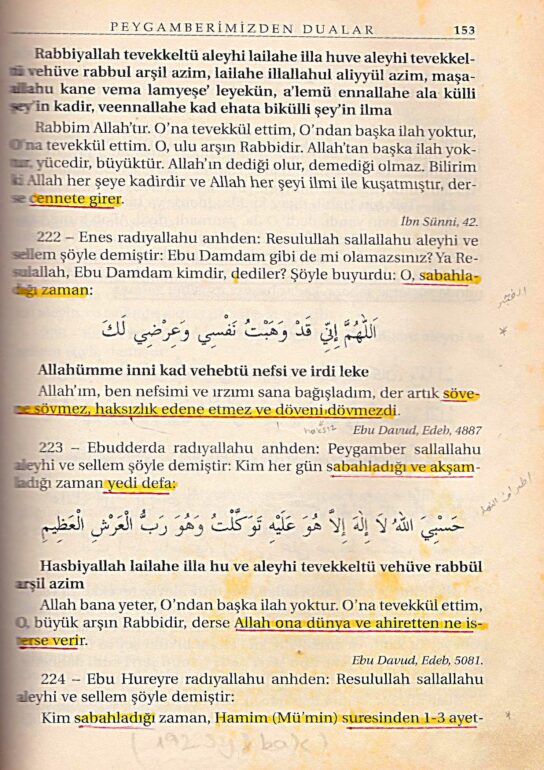 PEYGAMBERİMİZDEN DUALAR 153
Rabbiyallah tevekkeltü aleyhi lailahe illa huve aleyhi tevekkel-
tü vehüve rabbul arşil azim, lailahe illallahul aliyyül azim, maşa-
allahu kane vema lamyeşe’ leyekün, a’lemü ennallahe ala külli
şey’in kadir, veennallahe kad ehata bikülli şey’in ilma
Rabbim Allah’tır. O’na tevekkül ettim, O’ndan başka ilah yoktur,
O’na tevekkül ettim. O, ulu arşın Rabbidir. Allah’tan başka ilah yok-
tur, yücedir, büyüktür. Allah’ın dediği olur, demediği olmaz. Bilirim
ki Allah her şeye kadirdir ve Allah her şeyi ilmi ile kuşatmıştır, der-
se cennete girer.
İbn Sünni, 42.
222 – Enes radıyallahu anhden: Resulullah sallallahu aleyhi ve
sellem şöyle demiştir: Ebu Damdam gibi de mi olamazsınız? Ya Re-
sulallah, Ebu Damdam kimdir, dediler? Şöyle buyurdu: O, sabahla-
dığı zaman:
الفجر
*
اَللّٰهُمَّ اِنّ۪ي قَدْ وَهَبْتُ نَفْسِي وَعِرْضِي لَكَ
Allahümme inni kad vehebtü nefsi ve irdi leke
Allah’ım, ben nefsimi ve ırzımı sana bağışladım, der artık söve-
ne sövmez, haksızlık edene etmez ve döveni dövmezdi.
haksız
Ebu Davud, Edeb, 4887
223 – Ebudderda radıyallahu anhden: Peygamber sallallahu
aleyhi ve sellem şöyle demiştir: Kim her gün sabahladığı ve akşam-
ladığı zaman yedi defa:
حَسْبِيَ اللّٰهُ لَا إِلٰهَ إِلَّا هُوَ عَلَيْهِ تَوَكَّلْتُ وَهُوَ رَبُّ الْعَرْشِ الْعَظِيمِ
Hasbiyallah lailahe illa hu ve aleyhi tevekkeltü vehüve rabbül
arşil azim
Allah bana yeter, O’ndan başka ilah yoktur. O’na tevekkül ettim,
O, büyük arşın Rabbidir, derse Allah ona dünya ve ahiretten ne is-
terse verir.
Ebu Davud, Edeb, 5081.
224 – Ebu Hureyre radıyallahu anhden: Resulullah sallallahu
aleyhi ve sellem şöyle demiştir:
Kim sabahladığı zaman, Hamim (Mü’min) suresinden 1-3 ayet-
*